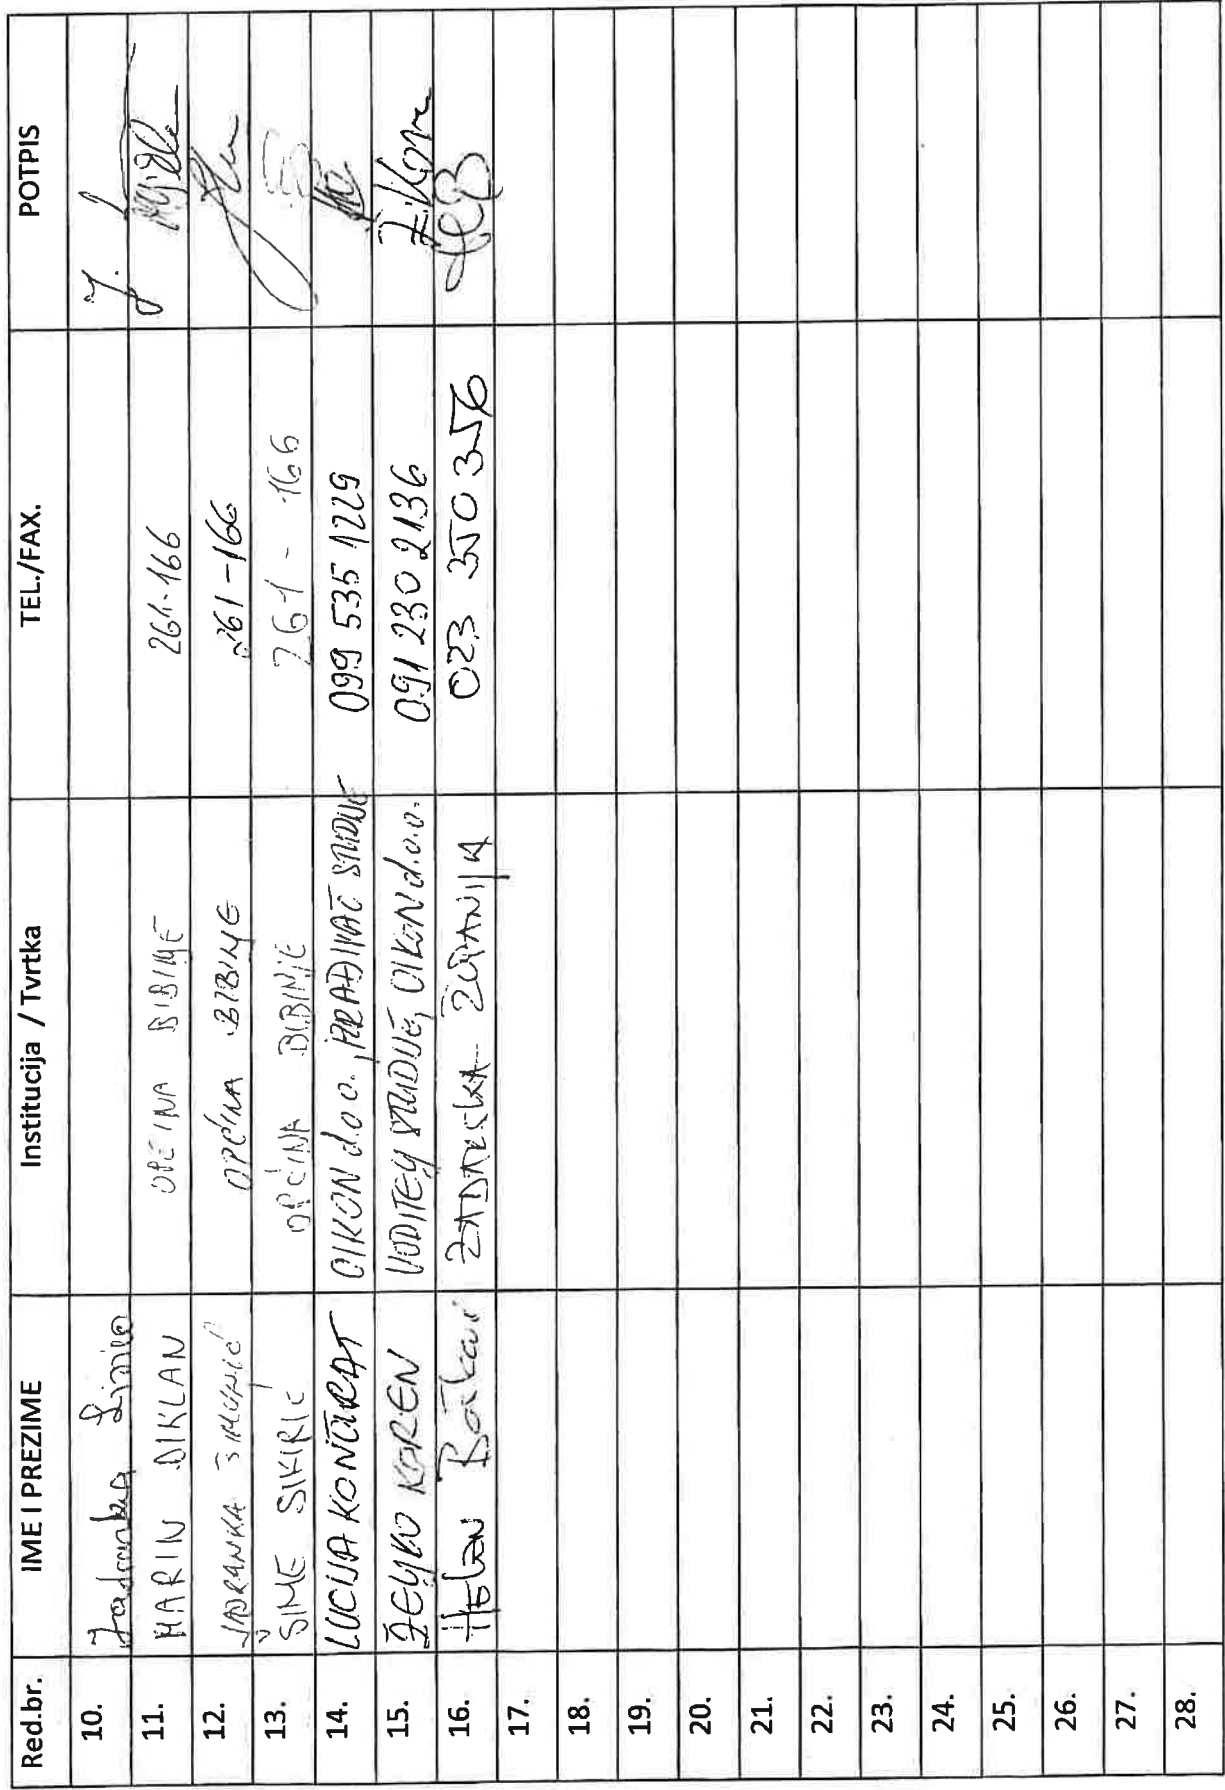 Red.br. IME I PREZIME Institucija / Tvrtka TEL./FAX. POTPIS
10. Jadranka
11. MARIN DIKLAN OPĆINA BIBINJE 261-166
12. JADRANKA ŠIMUNIĆ OPĆINA BIBINJE 261-166
13. ŠIME SIKIRIĆ OPĆINA BIBINJE 261-166
14. LUCIJA KONČURAT OIKON d.o.o., IZRAĐIVAČ STUDIJE 099 535 1229
15. ŽELJKO KOREN VODITELJ STUDIJE, OIKON d.o.o. 091 230 2136 Ž. Koren
16. ZADARSKA ŽUPANIJA 023 350 356
17.
18.
19.
20.
21.
22.
23.
24.
25.
26.
27.
28.